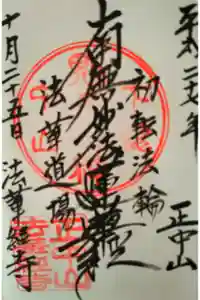 平成二十七年
正中山
初転法輪
南無妙法蓮華経
法華道場
十月二十五日
法華経寺